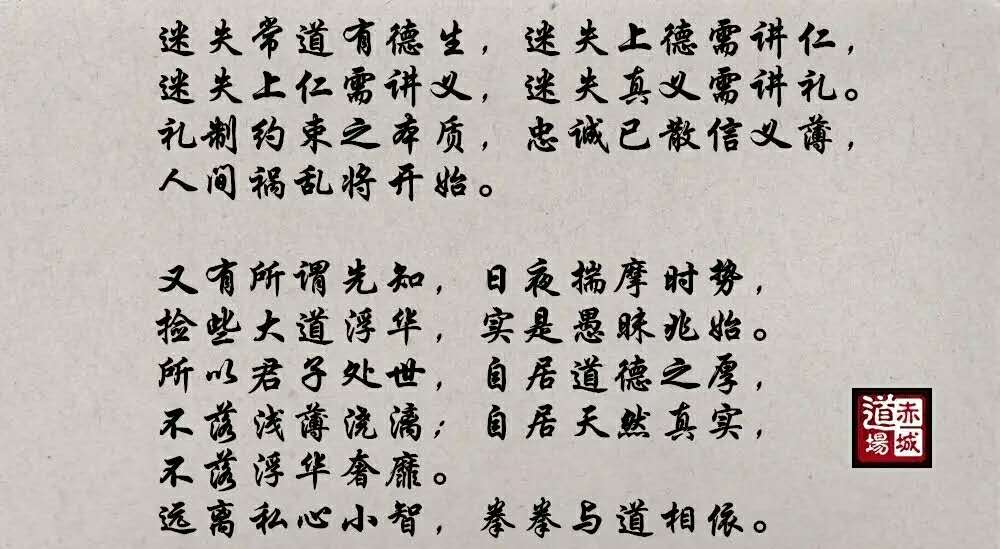 迷失常道有德生，迷失上德需讲仁，
迷失上仁需讲义，迷失真义需讲礼。
礼制约束之本质，忠诚已散信义薄，
人间祸乱将开始。
又有所谓先知，日夜揣摩时势，
捡些大道浮华，实是愚昧兆始。
所以君子处世，自居道德之厚，
不落浅薄浇漓；自居天然真实，
不落浮华奢靡。
远离私心小智，拳拳与道相依。
赤城道場